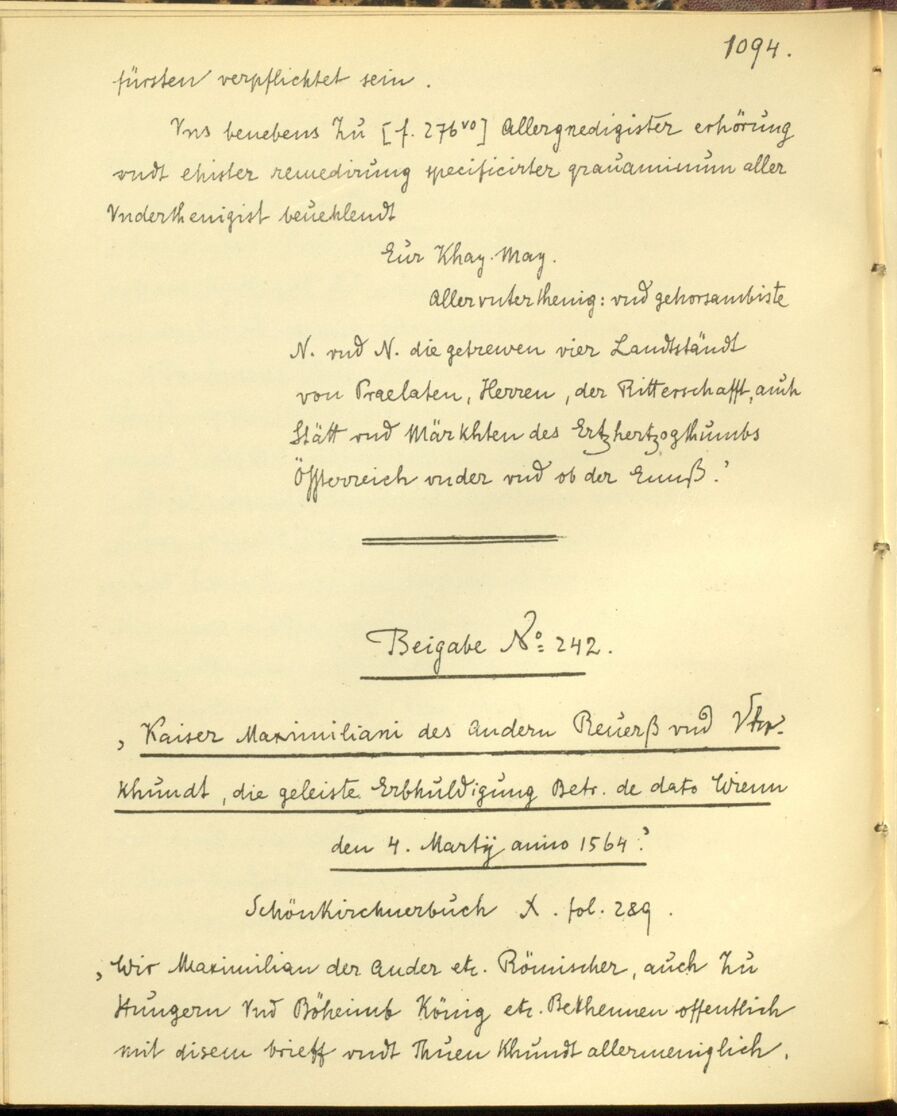 1094.
fürsten verpflichtet sein.
Vns benebens Zu [f. 276vo] Allergnedigister erhörung
vndt ehister remedirung specificirter grauaminum aller
Vnderthenigist beuehlendt
Eur Khay. May.
Allervnterthenig: vnd gehorsambiste
N. vnd N. die getrewen vier Landtständt
von Praelaten, Herren, der Ritterschafft, auch
Stätt vnd Märkhten des Ertzhertzogthumbs
Össterreich vnder vnd ob der Ennß.'
Beigabe No= 242.
, Kaiser Maximiliani des Andern Reuerß vnd Vhr-
khundt, die geleiste Erbhuldigung Betr. de dato Wienn
den 4. Martÿ anno 1564.'
Schönkirchnerbuch X. fol. 289.
, Wir Maximilian der Ander etc. Römischer, auch Zu
Hungern Vnd Böheimb König etc. Bekhennen offentlich
mit disem brieff vndt Thuen Khundt allermeniglich.